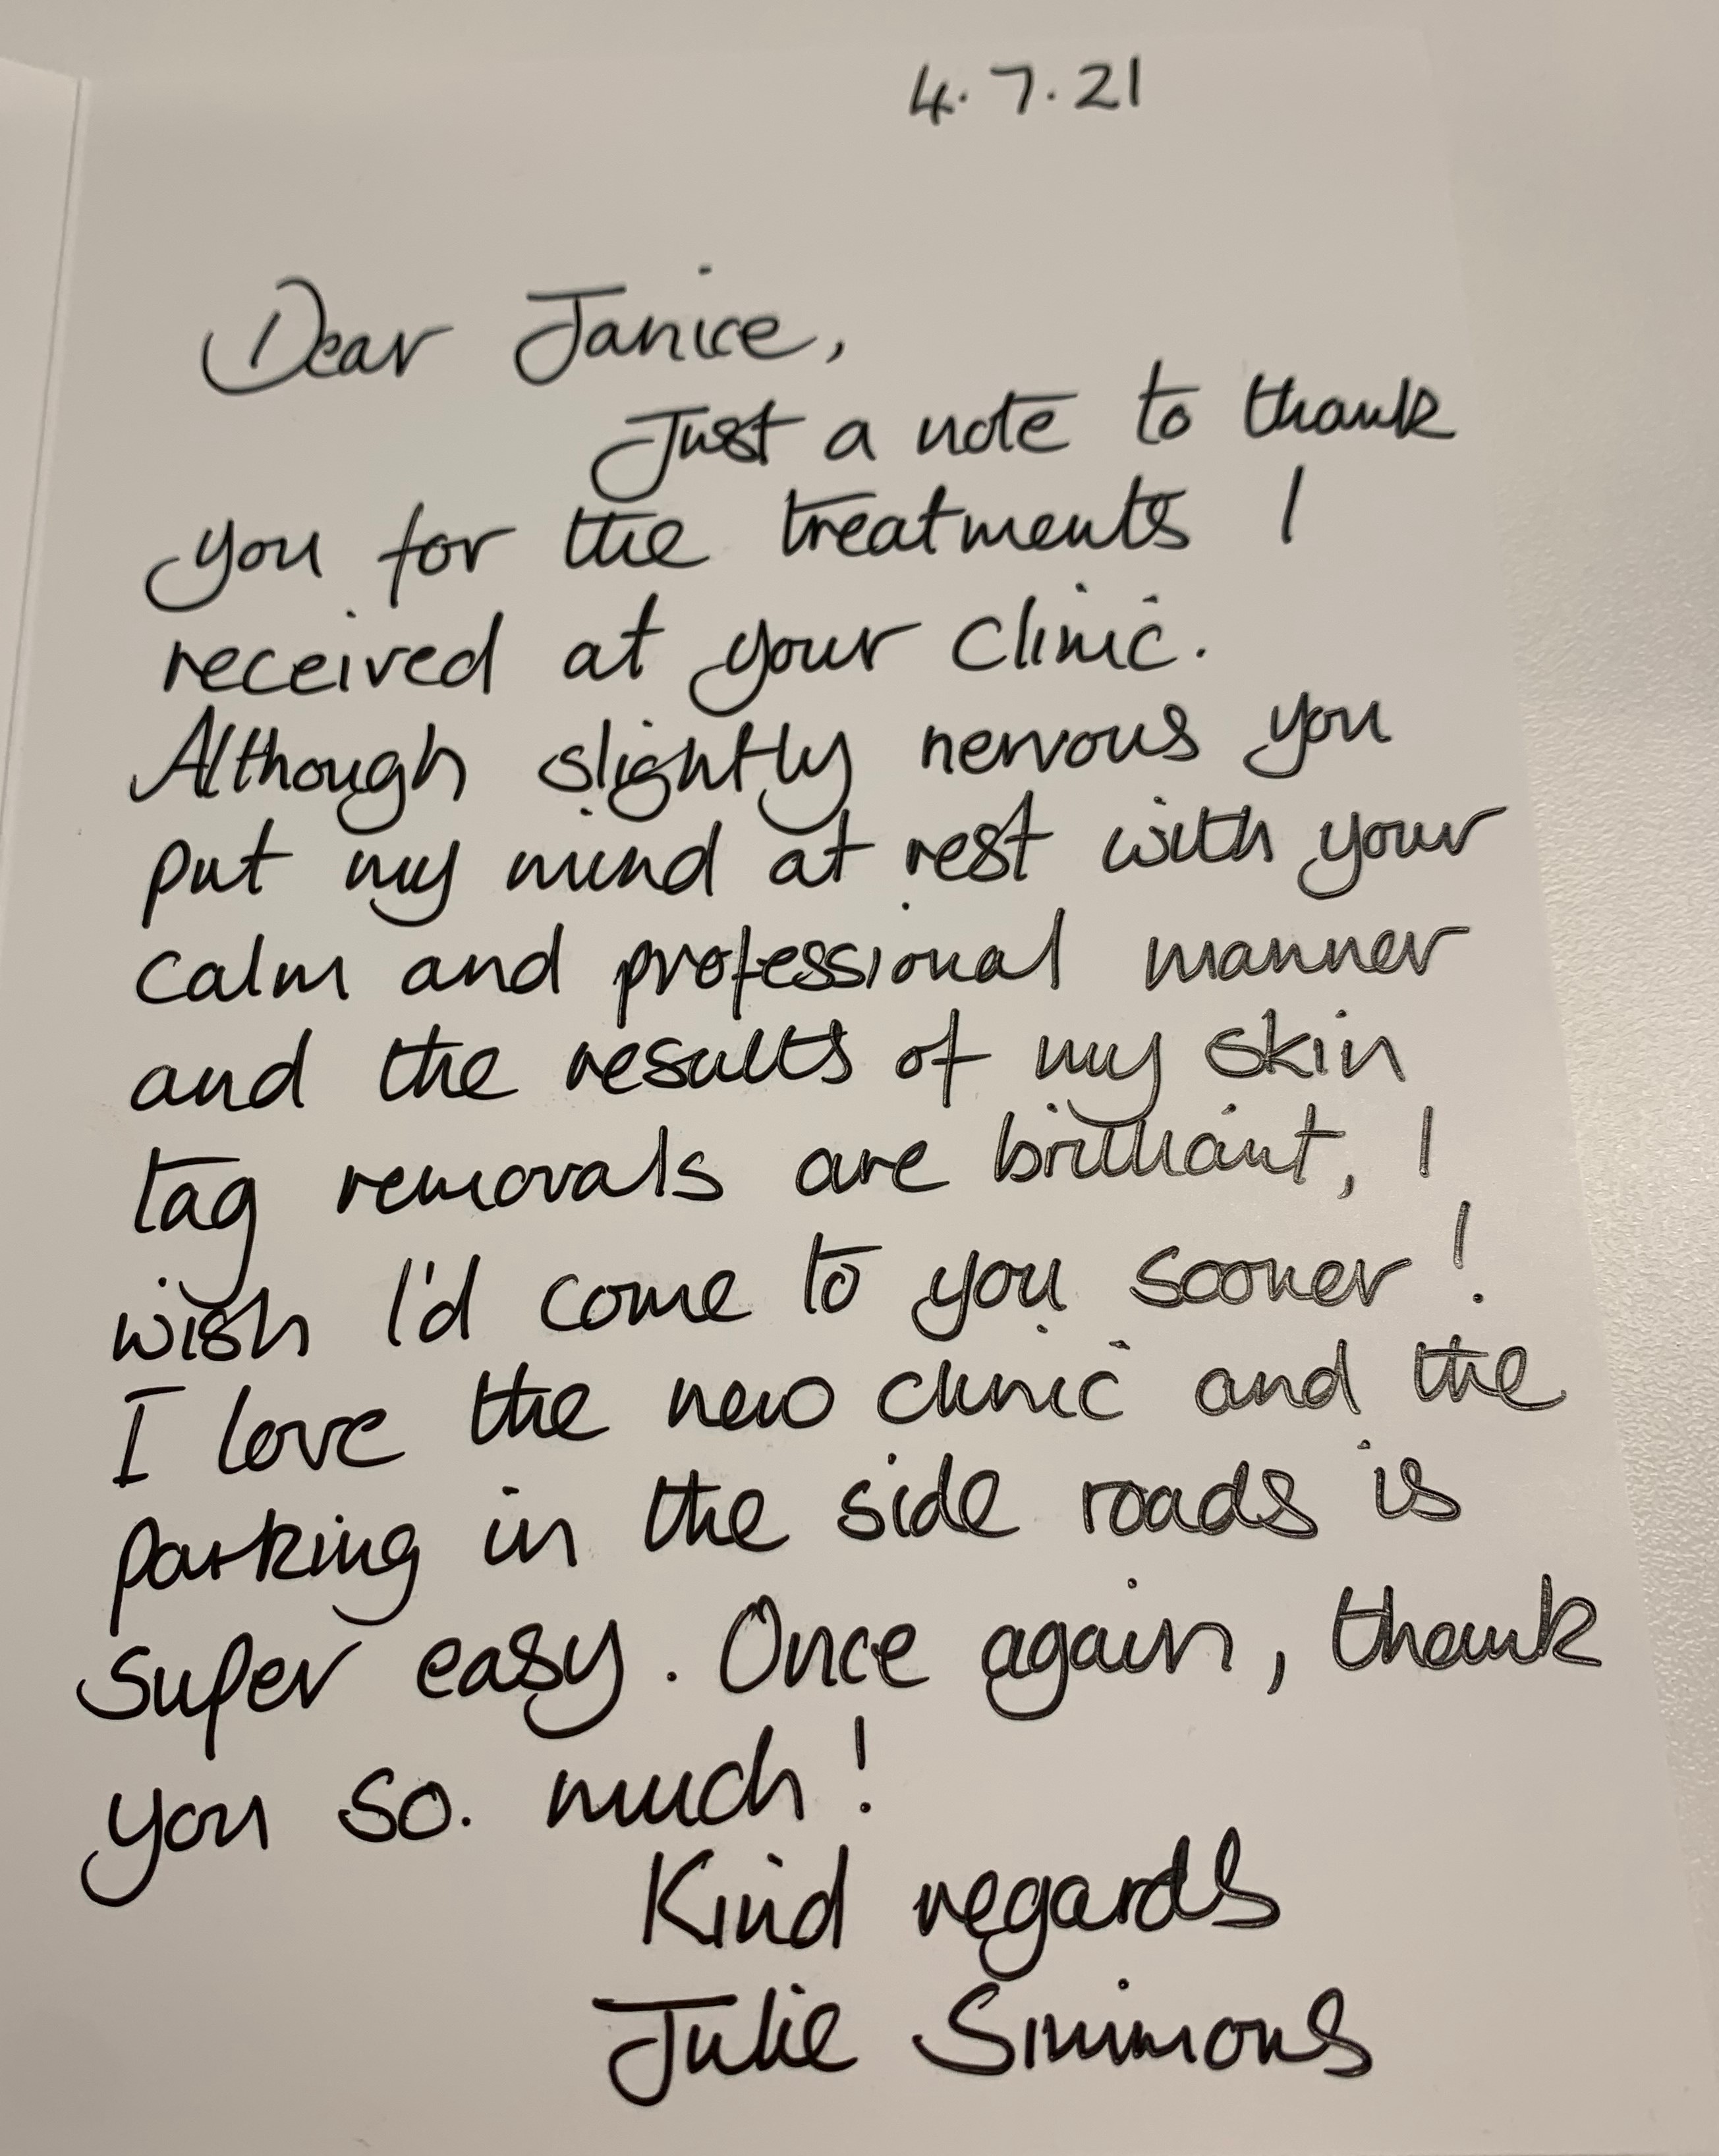 4.7.21
Dear Janice,
Just a note to thank
you for the treatments I
received at your clinic.
Although slightly nervous you
put my mind at rest with your
calm and professional manner
and the results of my skin
tag removals are brilliant, I
wish I'd come to you sooner!
I love the new clinic and the
parking in the side roads is
super easy. Once again, thank
you so. much!
Kind regards
Julie Simmons